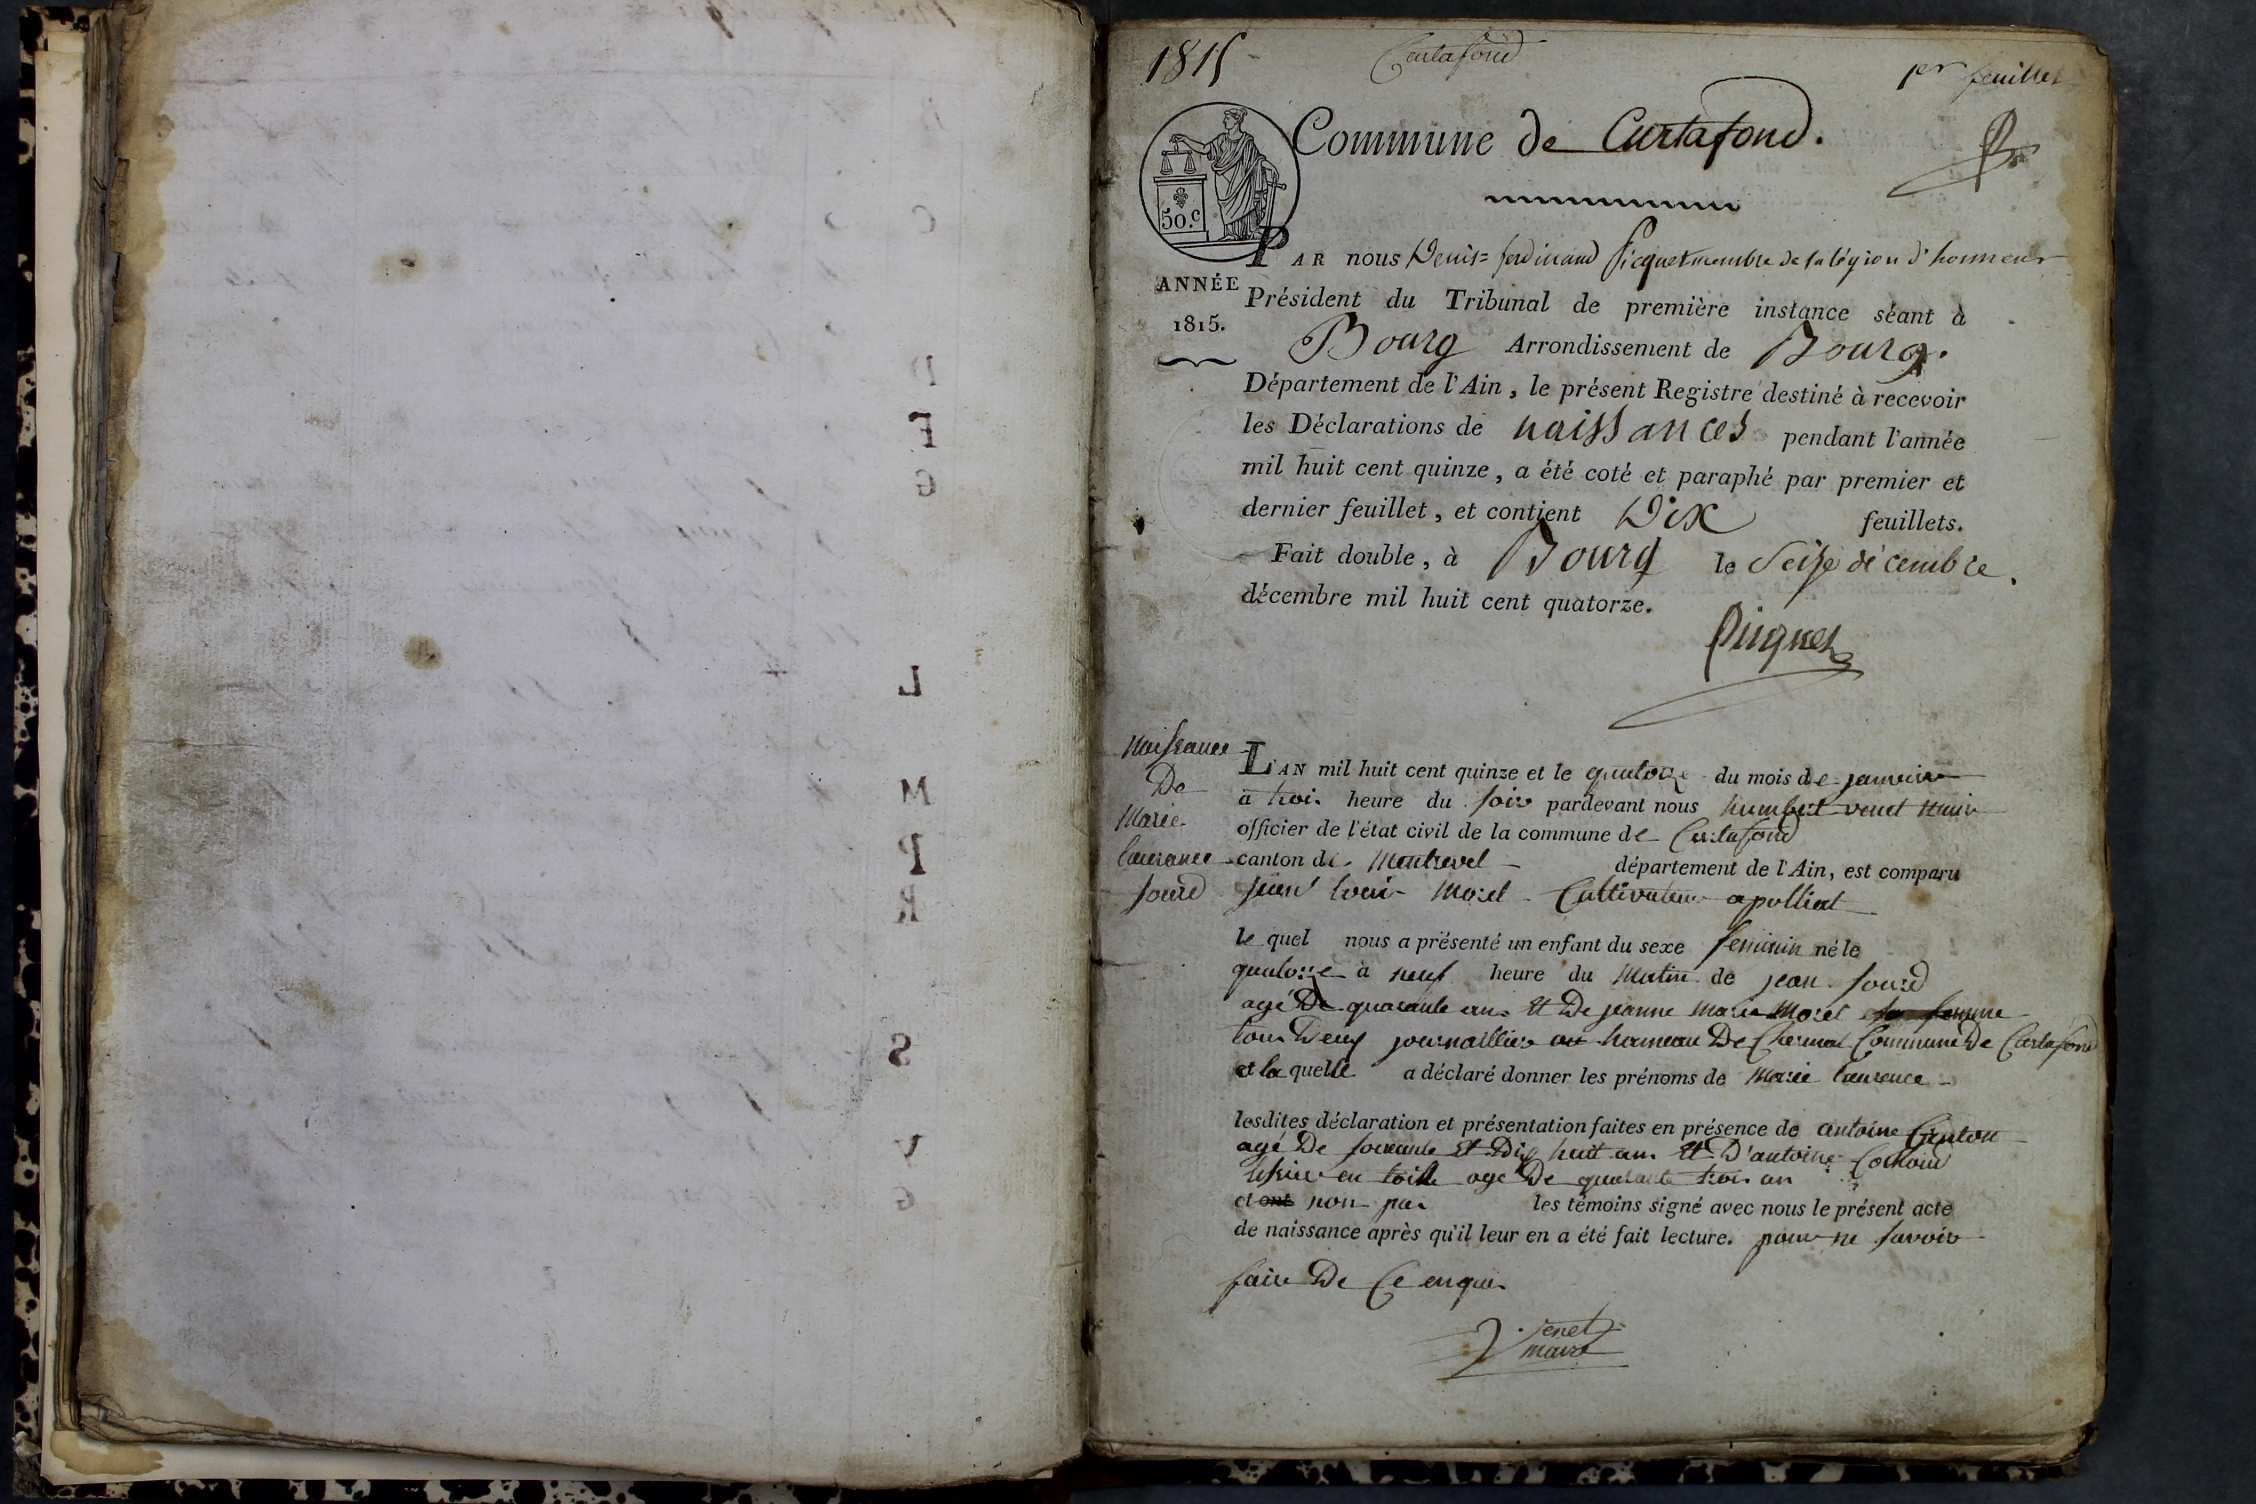 B
C
D
F
G
L
M
P
R
S
V
G
1815
Curtafond
1er feuillet
Commune de Curtafond.
50.c
PAR nous Denis= ferdinand Picquet membre de la légion d'honneur
ANNÉE
1815.
Président du Tribunal de première instance séant à
Bourg Arrondissement de Bourg.
Département de l'Ain, le présent Registre destiné à recevoir
les Déclarations de naissances pendant l'année
mil huit cent quinze, a été coté et paraphé par premier et
dernier feuillet, et contient Dix feuillets.
Fait double, à Bourg le Seize décembre.
décembre mil huit cent quatorze.
Picquet
Naissance
De
Marie
laurance
sourd
L'AN mil huit cent quinze et le quatorze du mois de janvier
a trois heure du soir pardevant nous humbert venet maire
officier de l'état civil de la commune de Curtafond
canton de Montrevel département de l'Ain, est comparu
jean louis Morel Cultivateur a polliat
le quel nous a présenté un enfant du sexe feminin né le
quatorze à neuf heure du Matin de jean sourd
agé De quarante ans Et De jeanne Marie Morel sa femme
tous Deux journallier au hameau De Commune De Curtafond
et la quelle a déclaré donner les prénoms de Marie laurence
lesdites déclaration et présentation faites en présence de antoine
agé De soixante Et Dix huit ans Et D'antoine
en toille agé De quarante trois an
et ont non pas les témoins signé avec nous le présent acte
de naissance après qu'il leur en a été fait lecture. pour ne savoir
faire De Ce enquis
venet
maire